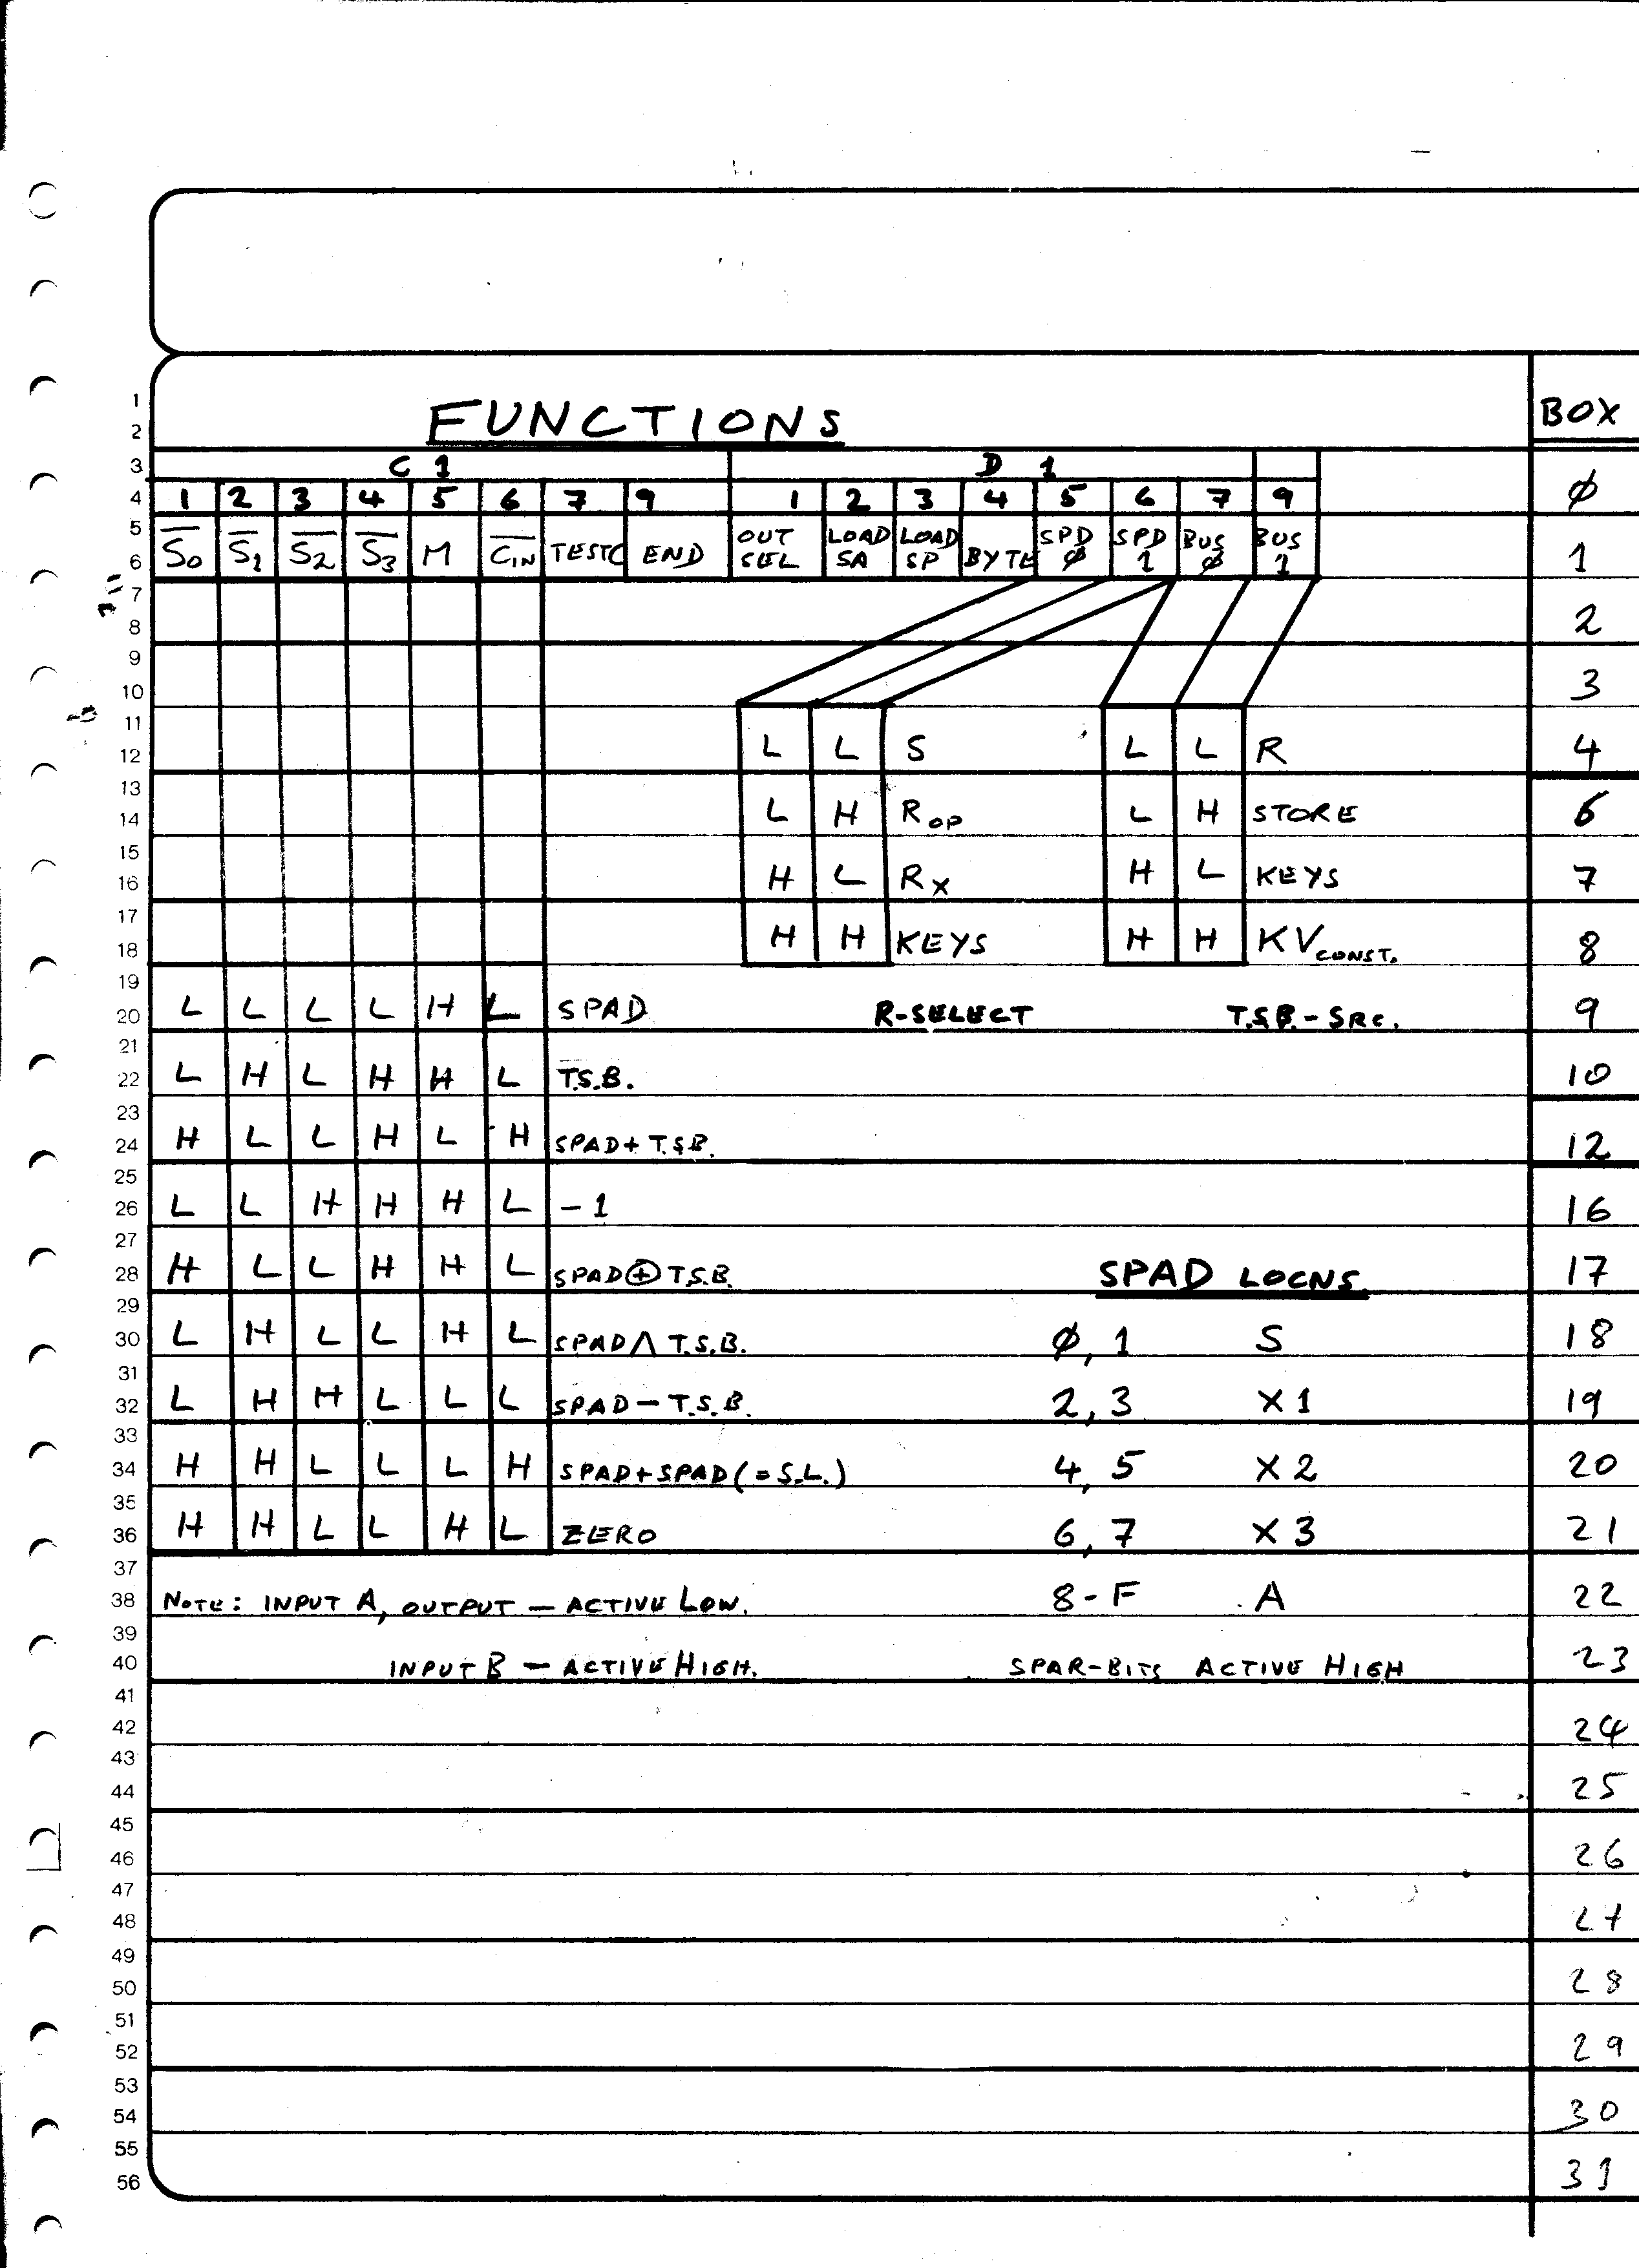 FUNCTIONS BOX
1
2
3 C 1 D 1
4 1 2 3 4 5 6 7 9 1 2 3 4 5 6 7 9 ∅
5 S̅0 S̅1 S̅2 S̅3 M C̅IN TESTC END OUT SEL LOAD SA LOAD SP BYTE SPD ∅ SPD 1 BUS ∅ BUS 1
6 1
7
8 2
9
10 3
11
12 L L S L L R 4
13
14 L H Rop L H STORE 6
15
16 H L Rx H L KEYS 7
17
18 H H KEYS H H KV CONST. 8
19
20 L L L L H L SPAD R-SELECT T.S.B.-SRC. 9
21
22 L H L H H L T.S.B. 10
23
24 H L L H L H SPAD+T.S.B. 12
25
26 L L H H H L -1 16
27
28 H L L H H L SPAD⊕T.S.B. SPAD LOCNS 17
29
30 L H L L H L SPAD∧T.S.B. ∅,1 S 18
31
32 L H H L L L SPAD-T.S.B. 2,3 X1 19
33
34 H H L L L H SPAD+SPAD(=S.L.) 4,5 X2 20
35
36 H H L L H L ZERO 6,7 X3 21
37
38 NOTE: INPUT A, OUTPUT — ACTIVE LOW. 8-F A 22
39
40 INPUT B — ACTIVE HIGH. SPAR-BITS ACTIVE HIGH 23
41
42 24
43
44 25
45
46 26
47
48 27
49
50 28
51
52 29
53
54 30
55
56 31